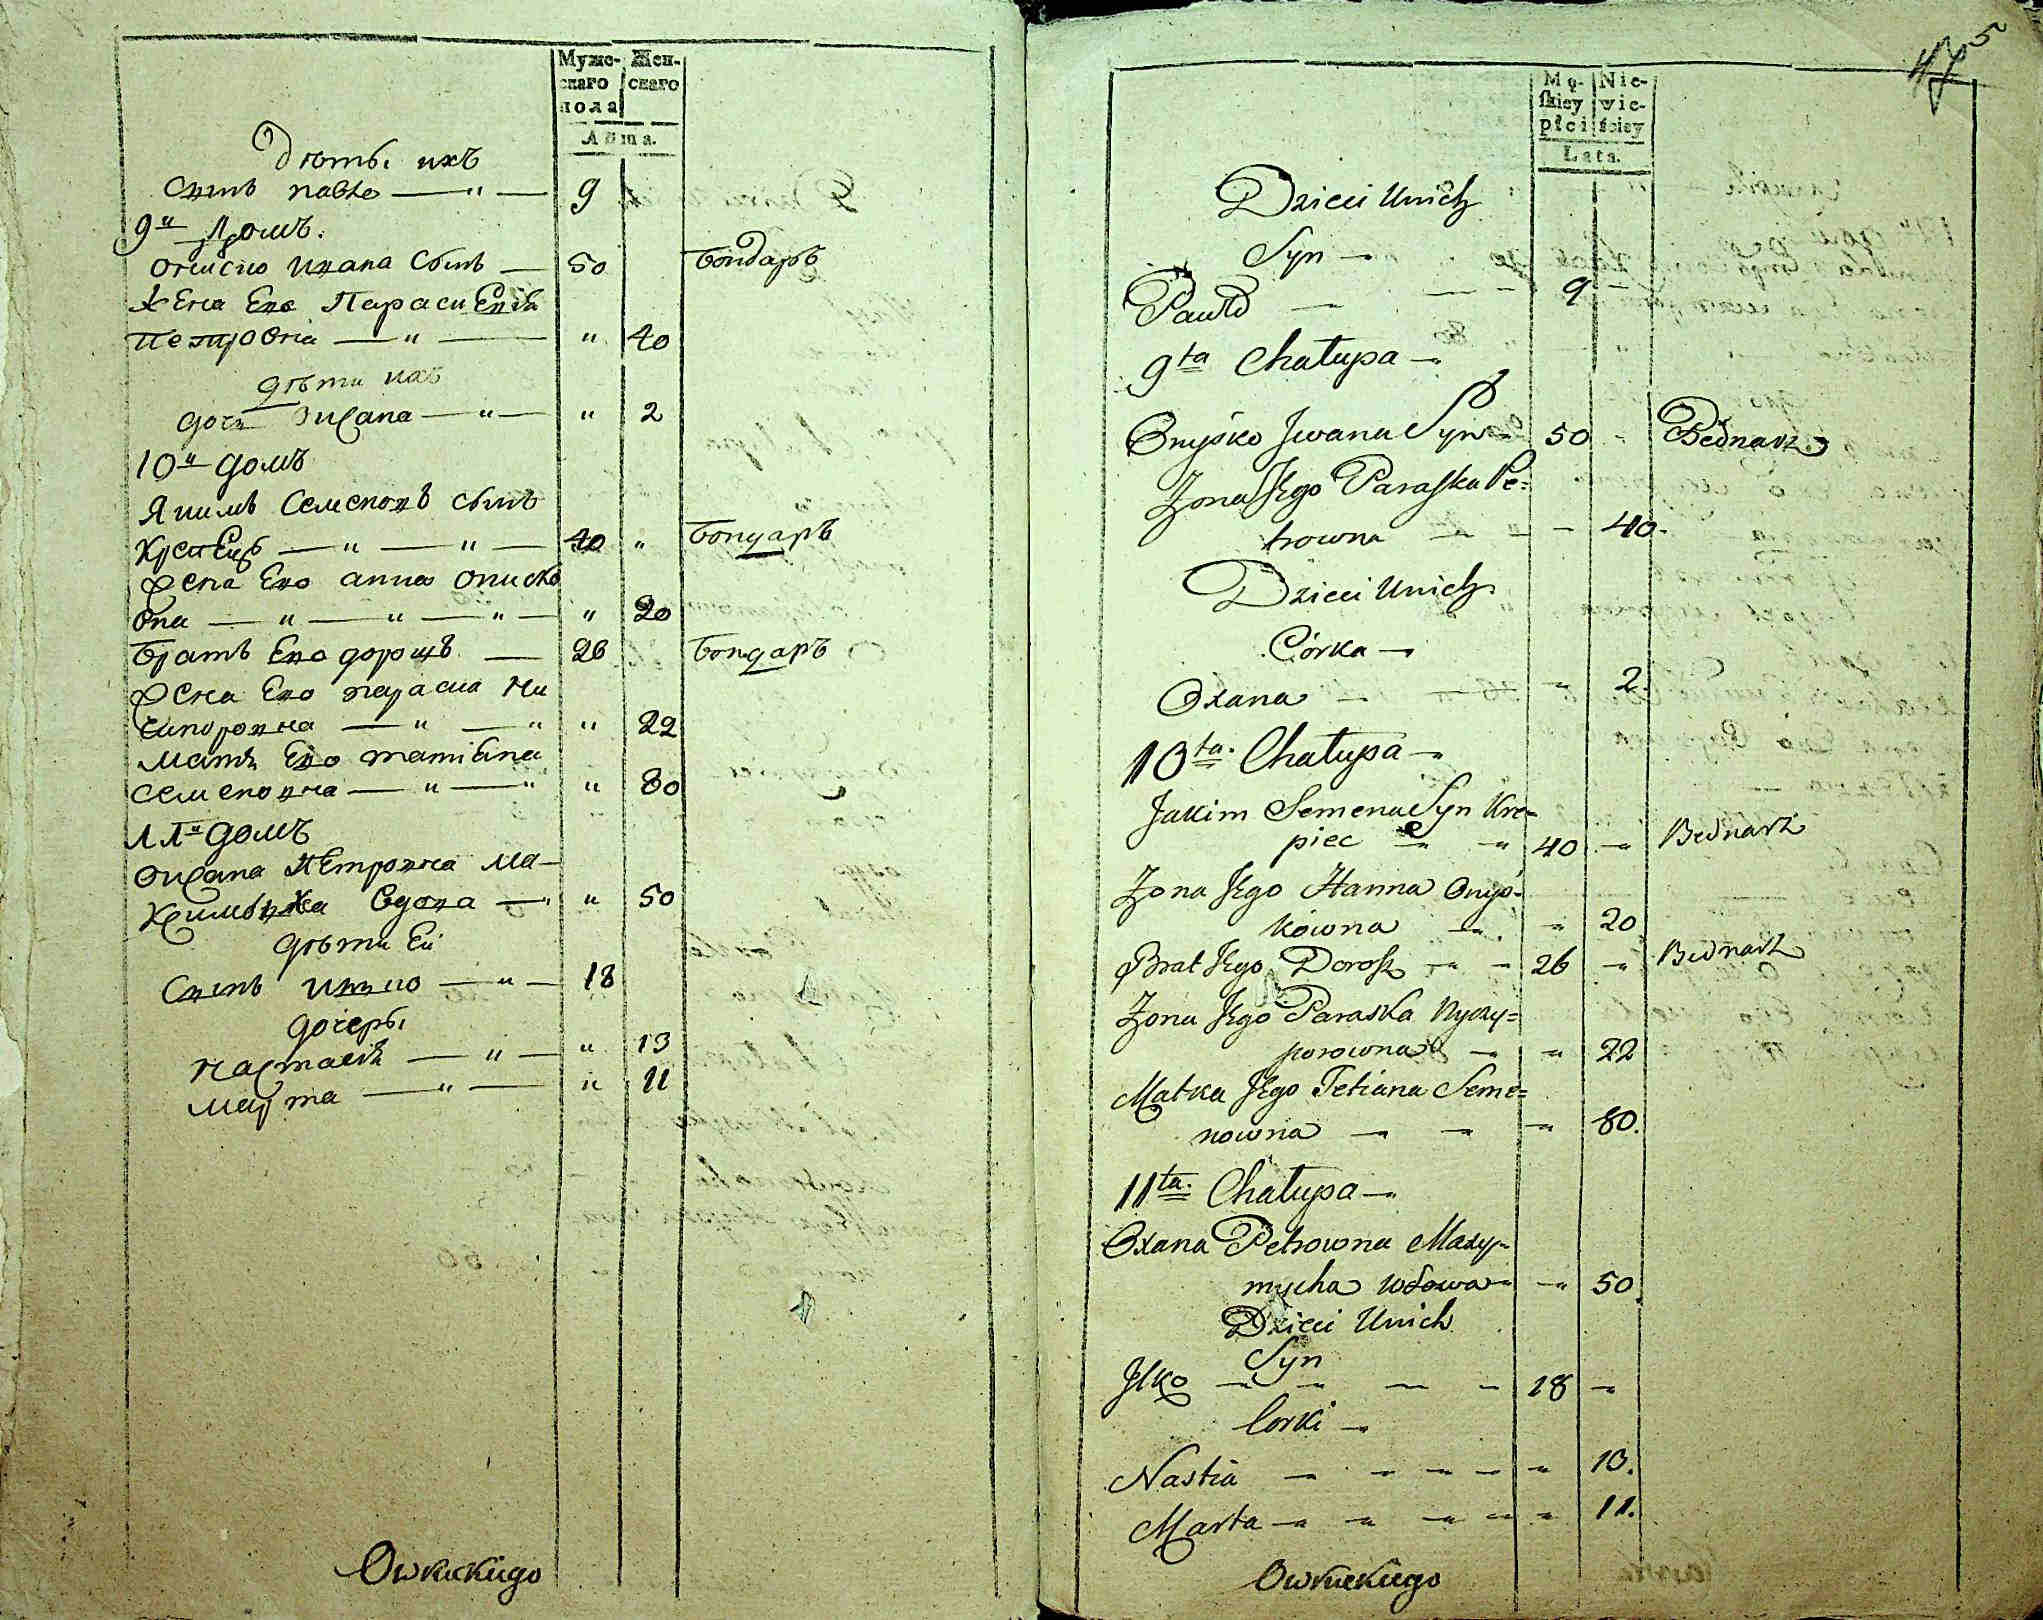 Муже-
скаго
пола
Жен-
скаго
Лѣта.
Дѣты ихъ
Сынъ павло — " — 9
9й Домъ.
Ониско Ивана Сынъ — 50 бондаръ
Жена Его Параси Евiя
петровна — " — " 40
дѣти ихъ
дочь Оисана — " — " 2
10й домъ
Якимъ Семеновъ Сынъ
Крепецъ — " — " — 40 " бондаръ
Жена Его анна ониско
вна — " — " — " — " 20
братъ Его дорошъ — 26 бондаръ
Жена Его параска ни
чипоровна — " — " " 22
Мать Его татiяна
семеновна — " — " " 80
11й домъ
Оксана Петровна Ма-
ксимыжа вдова — " " 50
дѣти Ей
Сынъ илко — " — 18
дочеры
настасiя — " — " 13
марта — " — " 11
Owruckiego
47 5
Mę-
ſkiey
płci
Nie-
wie-
ściey
Lata.
Dzieci Unich
Syn —
Pawło — — 9 —
9ta Chałupa —
Onyśko Jwana Syn — 50 - Bednarz
Zona Jego Paraſka Pe=
trowna — — — 40.
Dzieci Unich
Córka —
Oxana — — — 2.
10ta. Chałupa —
Jakim Semena Syn Kre=
piec — — 40 — Bednarz
Zona Jego Hanna Onyś=
kówna — — 20
Brat Jego Dorosz — — 26 — Bednarz
Zona Jego Paraska Nyczy=
porowna — — 22
Matka Jego Tetiana Seme=
nowna — — — 80.
11ta. Chałupa —
Oxana Petrowna Maxy=
mycha wdowa — — 50.
Dzieci Unich
Syn
Jlko — — — — 18 —
Corki —
Nastia — — — — — 13.
Marta — — — — — 11.
Owruckiego